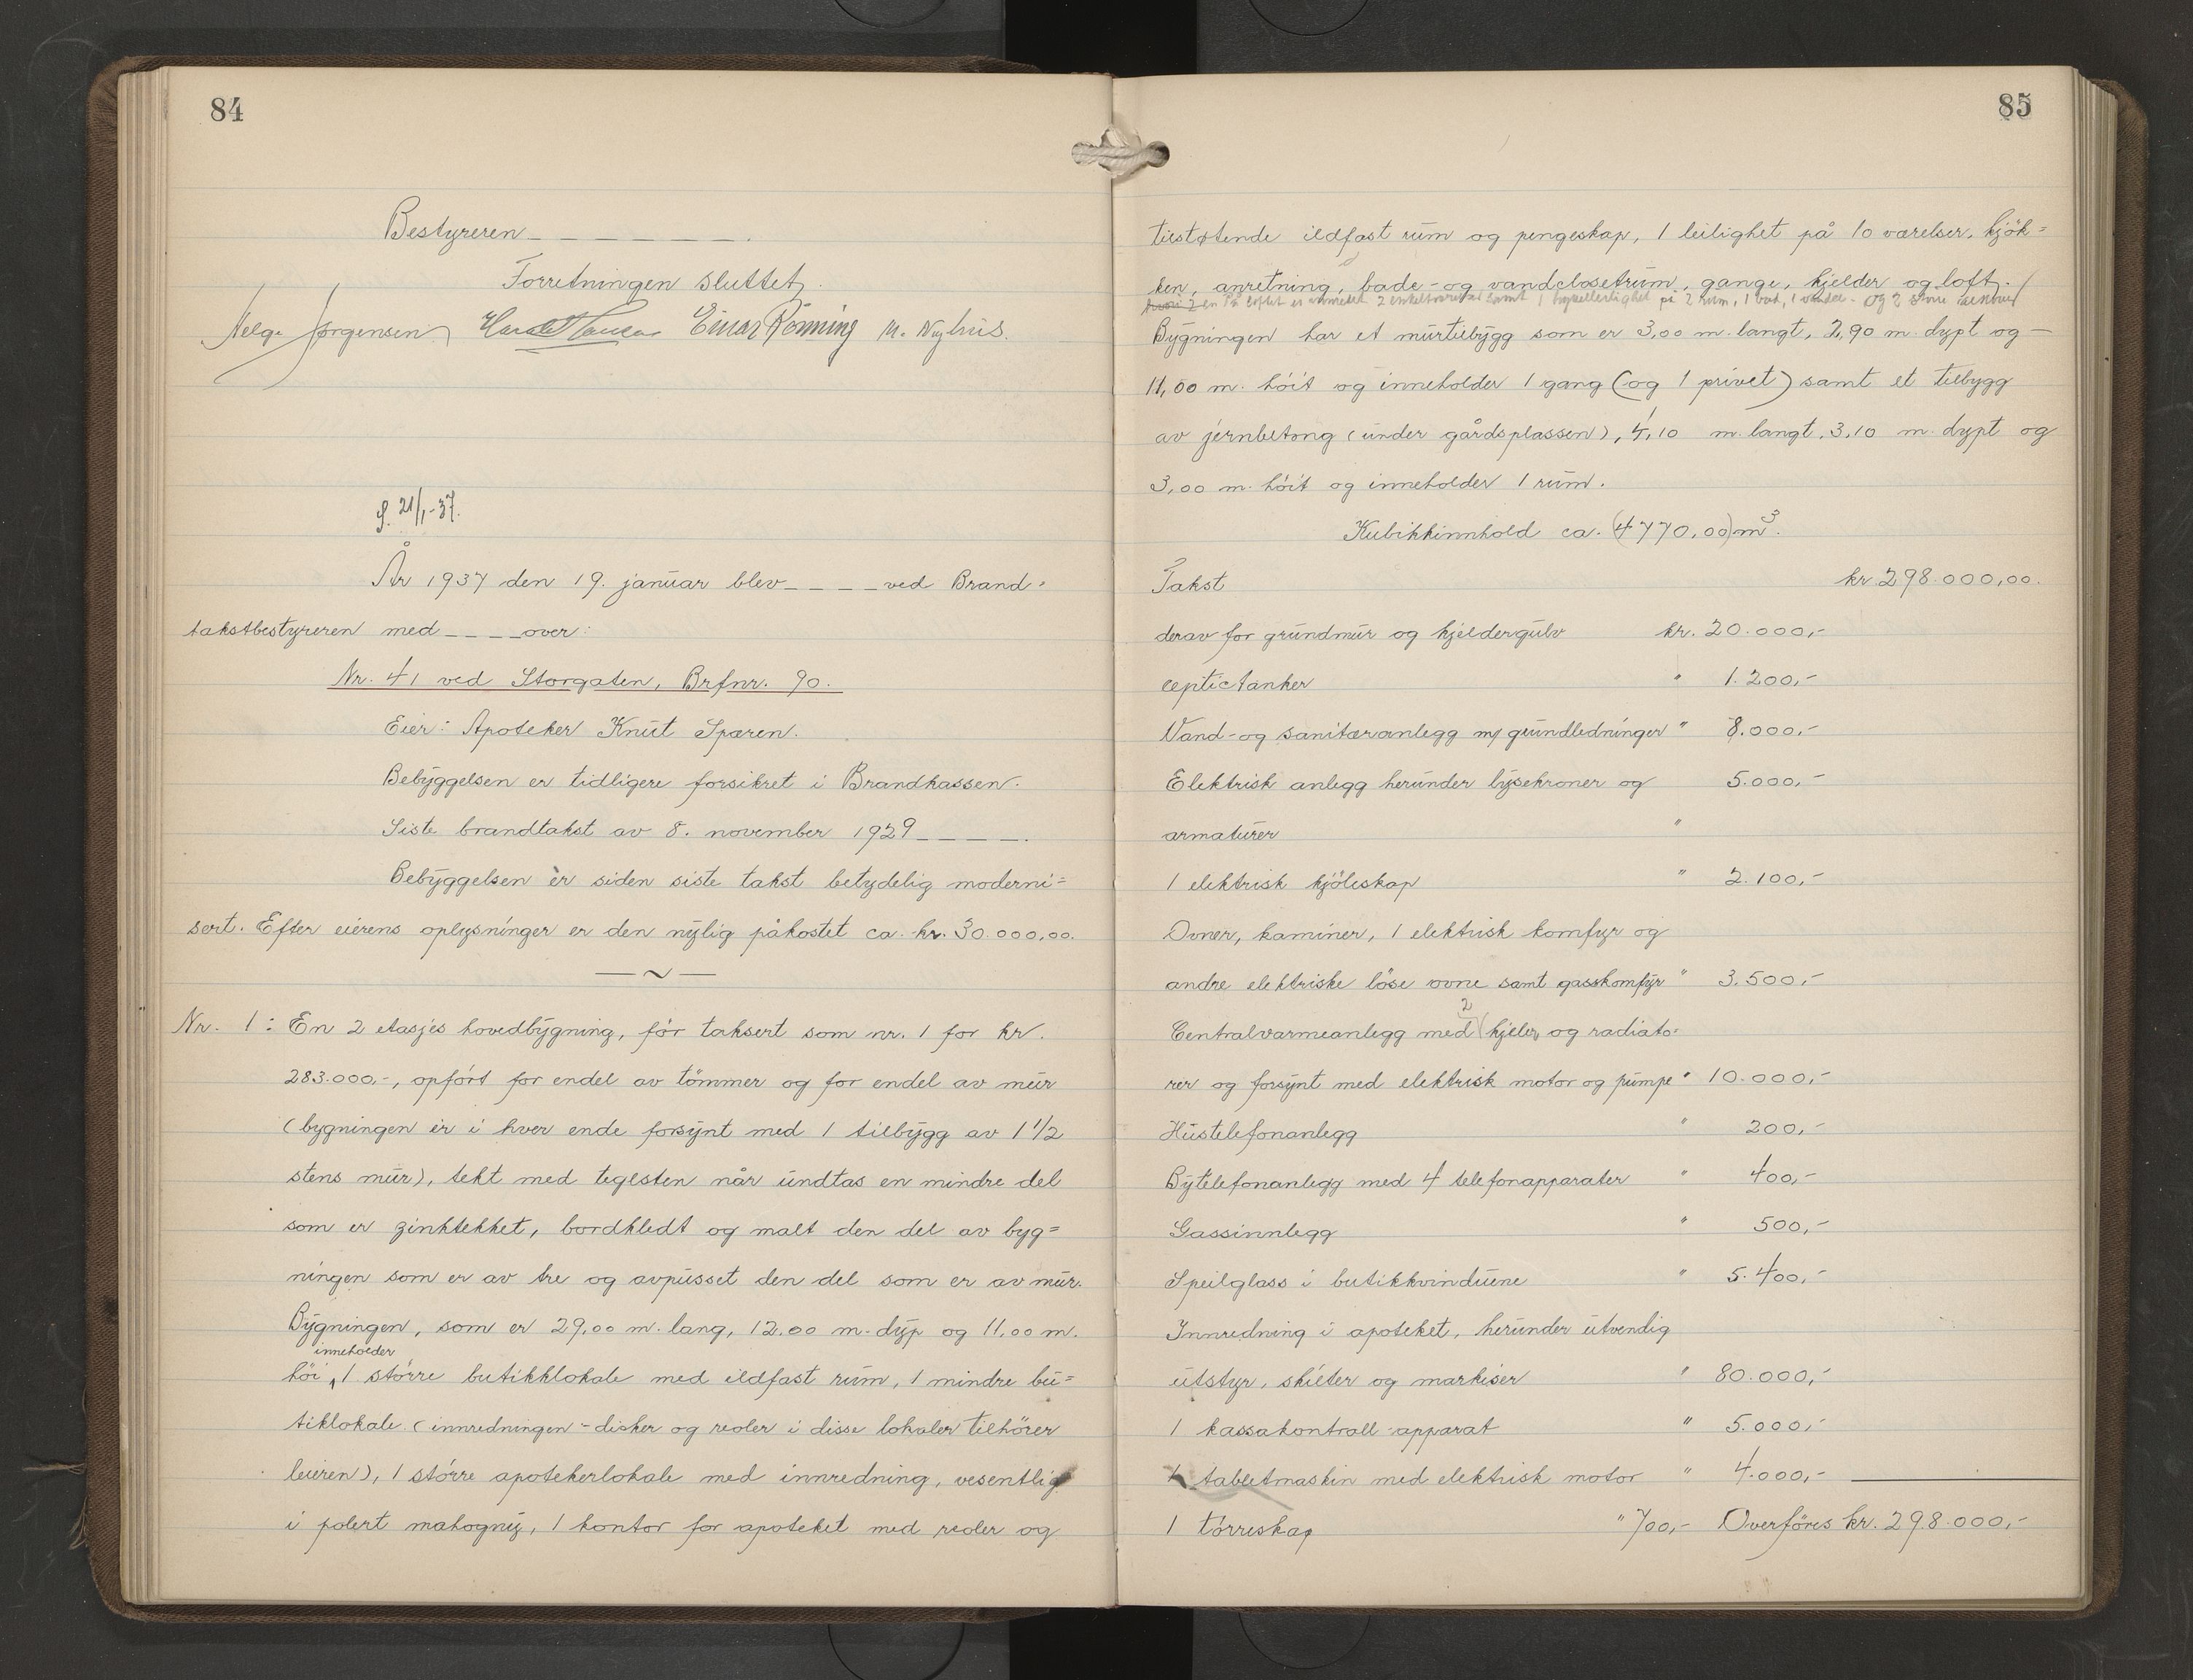 84
Bestyreren _ _ _ _ _ _ _.
Forretningen sluttet.
Helge Jørgensen Einar Rönning M. Nyhus.
21/1-37.
År 1937 den 19. januar blev _ _ _ _ ved Brand=
takstbestyreren med _ _ _ _ over:
Nr. 41 ved Storgaten, Brfnr. 90.
Eier: Apoteker Knut Sparen.
Bebyggelsen er tidligere forsikret i Brandkassen.
Siste brandtakst av 8. november 1929 _ _ _ _.
Bebyggelsen er siden siste takst betydelig moderni=
sert. Efter eierens oplysninger er den nylig påkostet ca. kr. 30.000,00.
— ~ —
Nr. 1: En 2 etasjes hovedbygning, før taksert som nr. 1 for kr.
283.000,-, opført for endel av tömmer og for endel av mur
(bygningen er i hver ende forsynt med 1 tilbygg av 1 1/2
stens mur), tekt med teglsten når undtas en mindre del
som er zinktekket, bordkledt og malt den del av byg=
ningen som er av tre og avpusset den del som er av mur.
Bygningen, som er 29,00 m. lang, 12.00 m. dyp og 11,00 m.
inneholder
höi, 1 større butikklokale med ildfast rum, 1 mindre bu=
tiklokale (innredningen - disker og reoler i disse lokaler tilhører
leieren), 1 større apotekerlokale med innredning, vesentlig
i polert mahogny, 1 kontor for apoteket med reoler og
85
tilstøtende ildfast rum og pengeskap, 1 leilighet på 10 værelser, kjök=
ken, anretning, bade- og vandclosetrum, gange, kjelder og loft.
På loftet er innredet 2 samt 1 på 2 rum, 1 bad, 1 og 2
Bygningen har et murtilbygg som er 3,00 m. langt, 2,90 m. dypt og —
11,00 m. höit og inneholder 1 gang (og 1 privet) samt et tilbygg
av jernbetong (under gårdsplassen), 4,10 m. langt, 3,10 m. dypt og
3,00 m. höit og inneholder 1 rum.
Kubikkinnhold ca. (4770,00) m³.
Takst kr. 298.000,00.
derav for grundmur og kjeldergulv kr. 20.000,-
ceptictanker " 1.200,-
Vand- og sanitæranlegg m/ grundledninger " 8.000,-
Elektrisk anlegg herunder lysekroner og 5.000,-
armaturer "
1 elektrisk kjøleskap " 2.100,-
Ovner, kaminer, 1 elektrisk komfyr og
andre elektriske löse ovne samt gasskomfyr " 3.500,-
2
Centralvarmeanlegg med (kjeler, og radiato=
rer og forsynt med elektrisk motor og pumpe " 10.000,-
Hustelefonanlegg " 200,-
Bytelefonanlegg med 4 telefonapparater " 400,-
Gassinnlegg " 500,-
Speilglass i butikkvinduene " 5.400,-
Innredning i apoteket, herunder utvendig
utstyr, skilter og markiser " 80.000,-
1 kassakontroll-apparat " 5.000,-
tabletmaskin med elektrisk motor " 4.000,-
1 törreskap " 700,- Overföres kr. 298.000,-